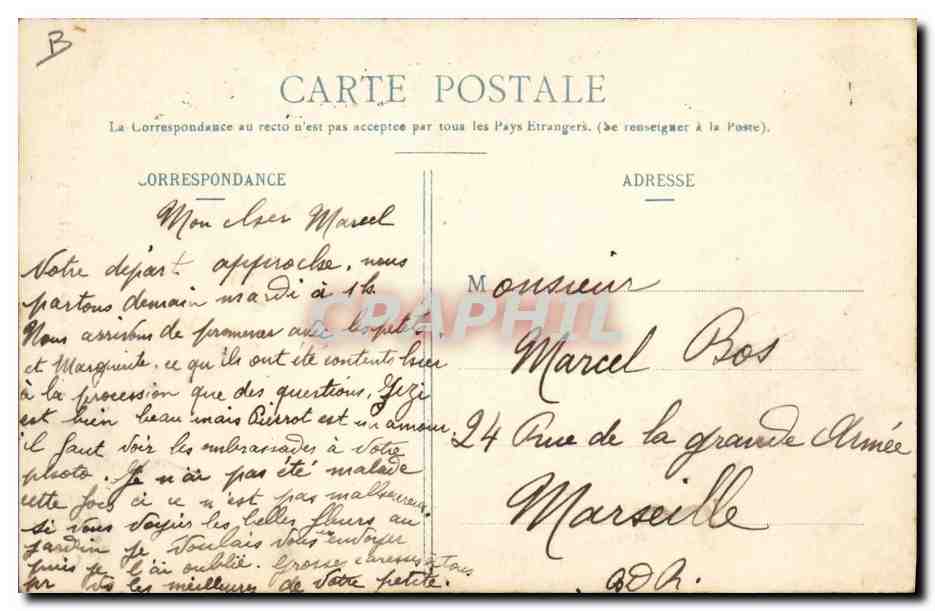 B
CARTE POSTALE
La Correspondance au recto n'est pas acceptée par tous les Pays Etrangers. (Se renseigner à la Poste).
CORRESPONDANCE
Mon cher Marcel
Notre départ approche, nous
partons demain mardi à 1h.
Nous arrivons de promener avec les petits
et Marguerite, ce qu'ils ont été contents hier
à la procession que des questions, Zizi
est bien beau mais Pierrot est un amour
il faut voir les embrassades à votre
photo. Je n'ai pas été malade
cette fois ci ce n'est pas malheureux.
Si vous voyiez les belles fleurs au
jardin je voulais vous en envoyer
puis je l'ai oublié. Grosses caresses à tous
les meilleures de votre petite.
ADRESSE
Monsieur
Marcel Bos
24 Rue de la grande Armée
Marseille
BDR.
CPAPHIL